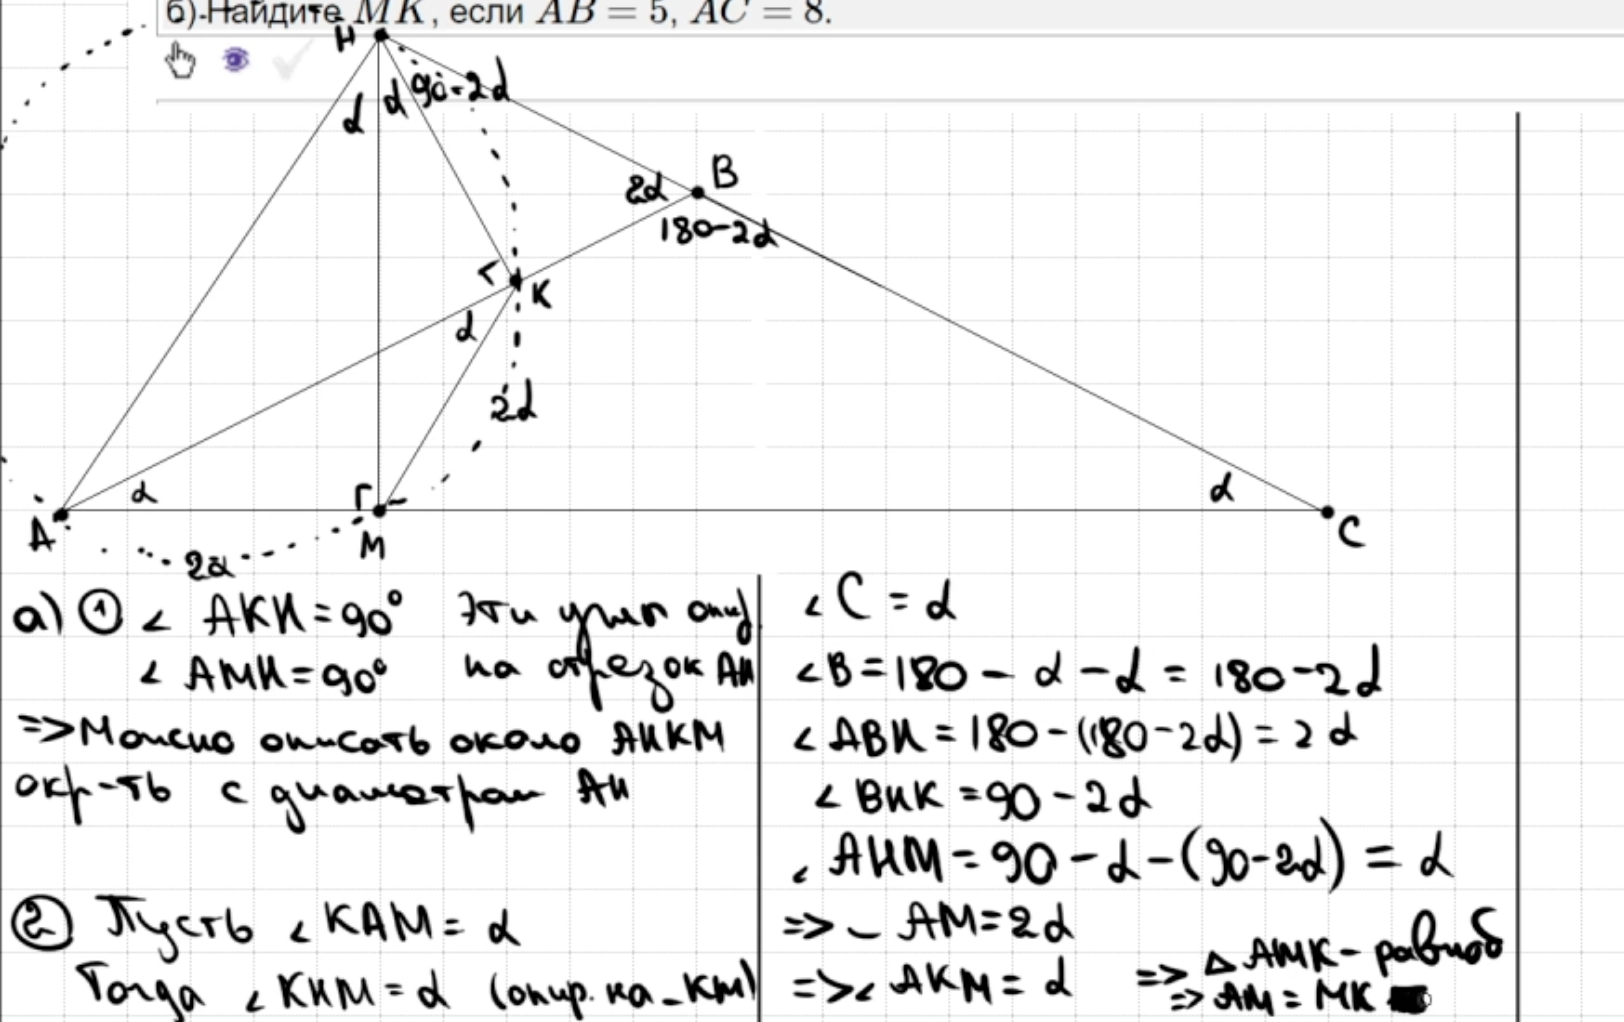 б) Найдите MK, если AB = 5, AC = 8.
H
α
α
90-2α
2α
B
180-2α
K
α
2α
α
A
M
2α
α
C
а) ① ∠ AKH = 90° Эти углы опир.
∠ AMH = 90° на отрезок AH
=> Можно описать около AHKM
окр-ть с диаметром AH
② Пусть ∠ KAM = α
Тогда ∠ KHM = α (опир. на ◡ KM)
∠ C = α
∠ B = 180 - α - α = 180 - 2α
∠ ABH = 180 - (180 - 2α) = 2α
∠ BHK = 90 - 2α
∠ AHM = 90 - α - (90 - 2α) = α
=> ◡ AM = 2α
=> ∠ AKM = α
=> Δ AMK - равноб
=> AM = MK ■